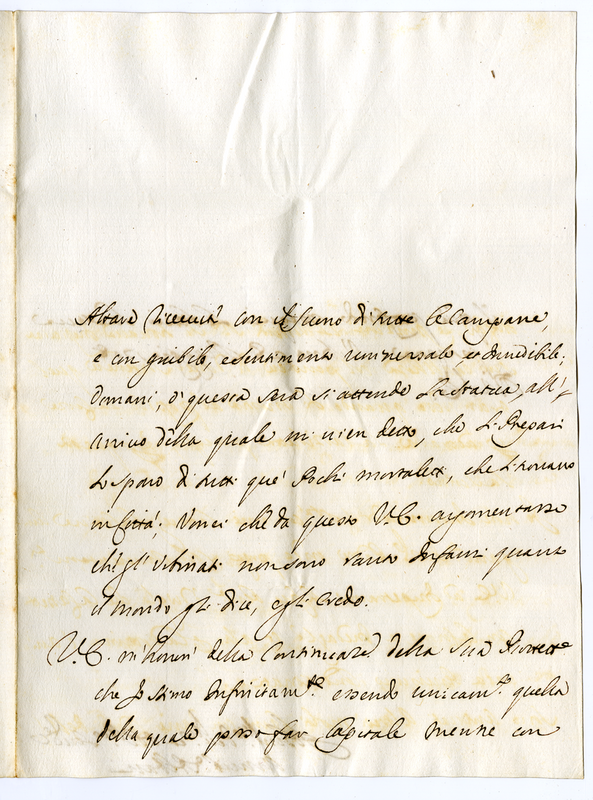 Altare ricevuta con il suono di tutte le Campane,
e con giubilo, e sentimento universale, et indicibile;
domani, ò questa sera si attende la statua, all'
arrivo della quale mi vien detto, che si prepari
lo sparo di tutti que' pochi mortaletti, che si trovano
in Città; Vorrei che da questo V.E. argomentasse
che gl' Urbinati non sono tanto infami quanto
il mondo gli dice, e gli credo.
V.E. m'honori della Continuaz.e della sua Protett.e
che io stimo infinitam.te essendo unicam.te quella
della quale posso far Capitale mentre con